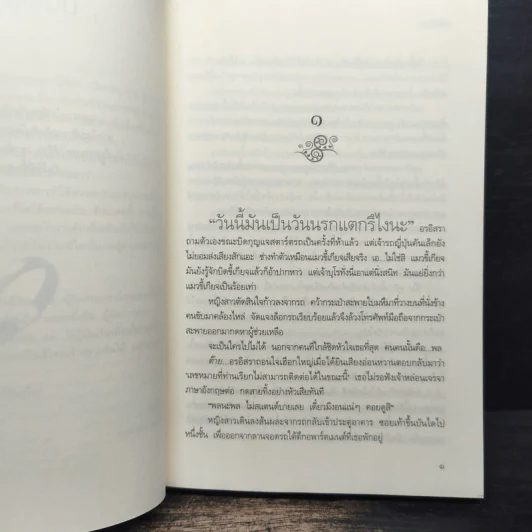 ๑
“วันนี้มันเป็นวันนรกแตกรึไงนะ” อรอิสรา
ถามตัวเองขณะบิดกุญแจสตาร์ตรถเป็นครั้งที่ห้าแล้ว แต่เจ้ารถญี่ปุ่นคันเล็กยัง
ไม่ยอมส่งเสียงสักแอะ ช่างทำตัวเหมือนแมวขี้เกียจเสียจริง เอ...ไม่ใช่สิ แมวขี้เกียจ
มันยังรู้จักบิดขี้เกียจแล้วก็อ้าปากหาว แต่เจ้าบุโรทั่งนี่เอาแต่นิ่งสนิท มันแย่ยิ่งกว่า
แมวขี้เกียจเป็นร้อยเท่า
หญิงสาวตัดสินใจก้าวลงจากรถ คว้ากระเป๋าสะพายใบมหึมาที่วางบนที่นั่งข้าง
คนขับมาคล้องไหล่ จัดแจงล็อกรถเรียบร้อยแล้วจึงล้วงโทรศัพท์มือถือจากกระเป๋า
สะพายออกมากดหาผู้ช่วยเหลือ
จะเป็นใครไปไม่ได้ นอกจากคนที่ใกล้ชิดหัวใจเธอที่สุด คนคนนั้นคือ...พล
ตู๊ด...อรอิสราถอนใจเฮือกใหญ่เมื่อได้ยินเสียงอ่อนหวานตอบกลับมาว่า
‘เลขหมายที่ท่านเรียกไม่สามารถติดต่อได้ในขณะนี้’ เธอไม่รอฟังเจ้าหล่อนเจรจา
ภาษาอังกฤษต่อ กดสายทิ้งอย่างหัวเสียทันที
“พลนะพล ไม่สแตนด์บายเลย เดี๋ยวมีงอนแน่ๆ คอยดูสิ”
หญิงสาวเดินลงส้นผละจากรถกลับเข้าประตูอาคาร ซอยเท้าขึ้นบันไดไป
หนึ่งชั้น เพื่อออกจากลานจอดรถใต้ตึกอพาร์ตเมนต์ที่เธอพักอยู่